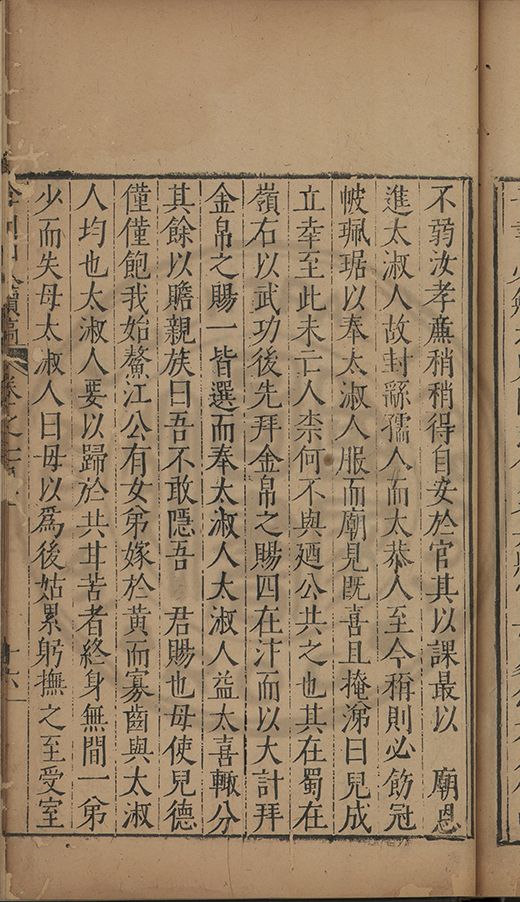 不弱汝孝蕪稍稍得自安於官其以課最以　廟恩
進太淑人故封繇孺人而太恭人至今稱則必飭冠
帔珮琚以奉太淑人服而廟見旣喜且掩涕曰兒成
立幸至此未亡人柰何不與廼公共之也其在蜀在
嶺右以武功後先拜金帛之賜四在汴而以大計拜
金帛之賜一皆選而奉太淑人太淑人益太喜輙分
其餘以贍親族曰吾不敢隱吾　君賜也毋使兒德
僅僅飽我始鰲江公有女弟嫁於黃而寡齒與太淑
人均也太淑人要以歸於共甘苦者終身無間一弟
少而失母太淑人曰毋以爲後姑累躬撫之至受室
續稿
卷之
十六